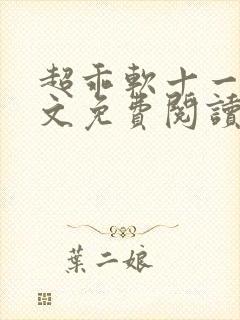 超乖軟十一
文免費閱讀
葉二娘